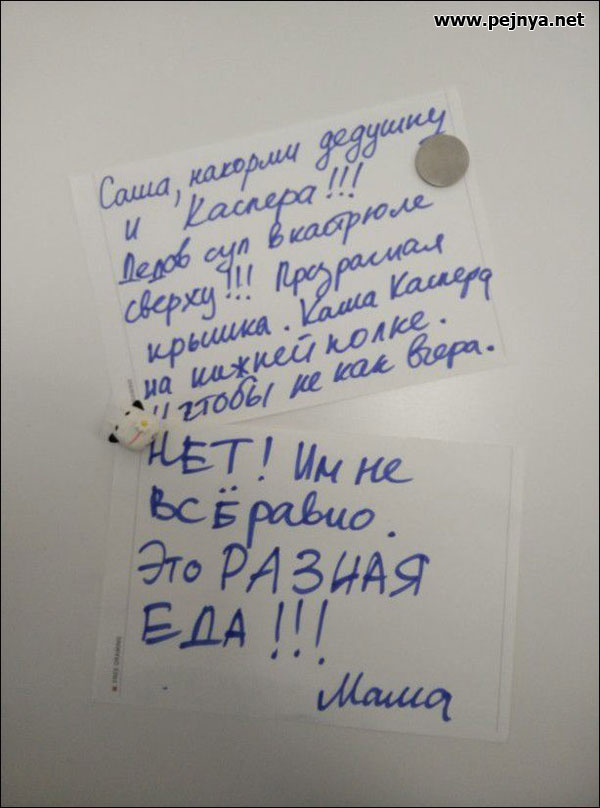 www.pejnya.net
Саша, накорми дедушку
и Каспера!!!
Дедов суп в кастрюле
сверху!!! Прозрачная
крышка. Каша Каспера
на нижней полке.
И чтобы не как вчера.
НЕТ! Им не
ВСЁ равно.
Это РАЗНАЯ
ЕДА!!!
Мама